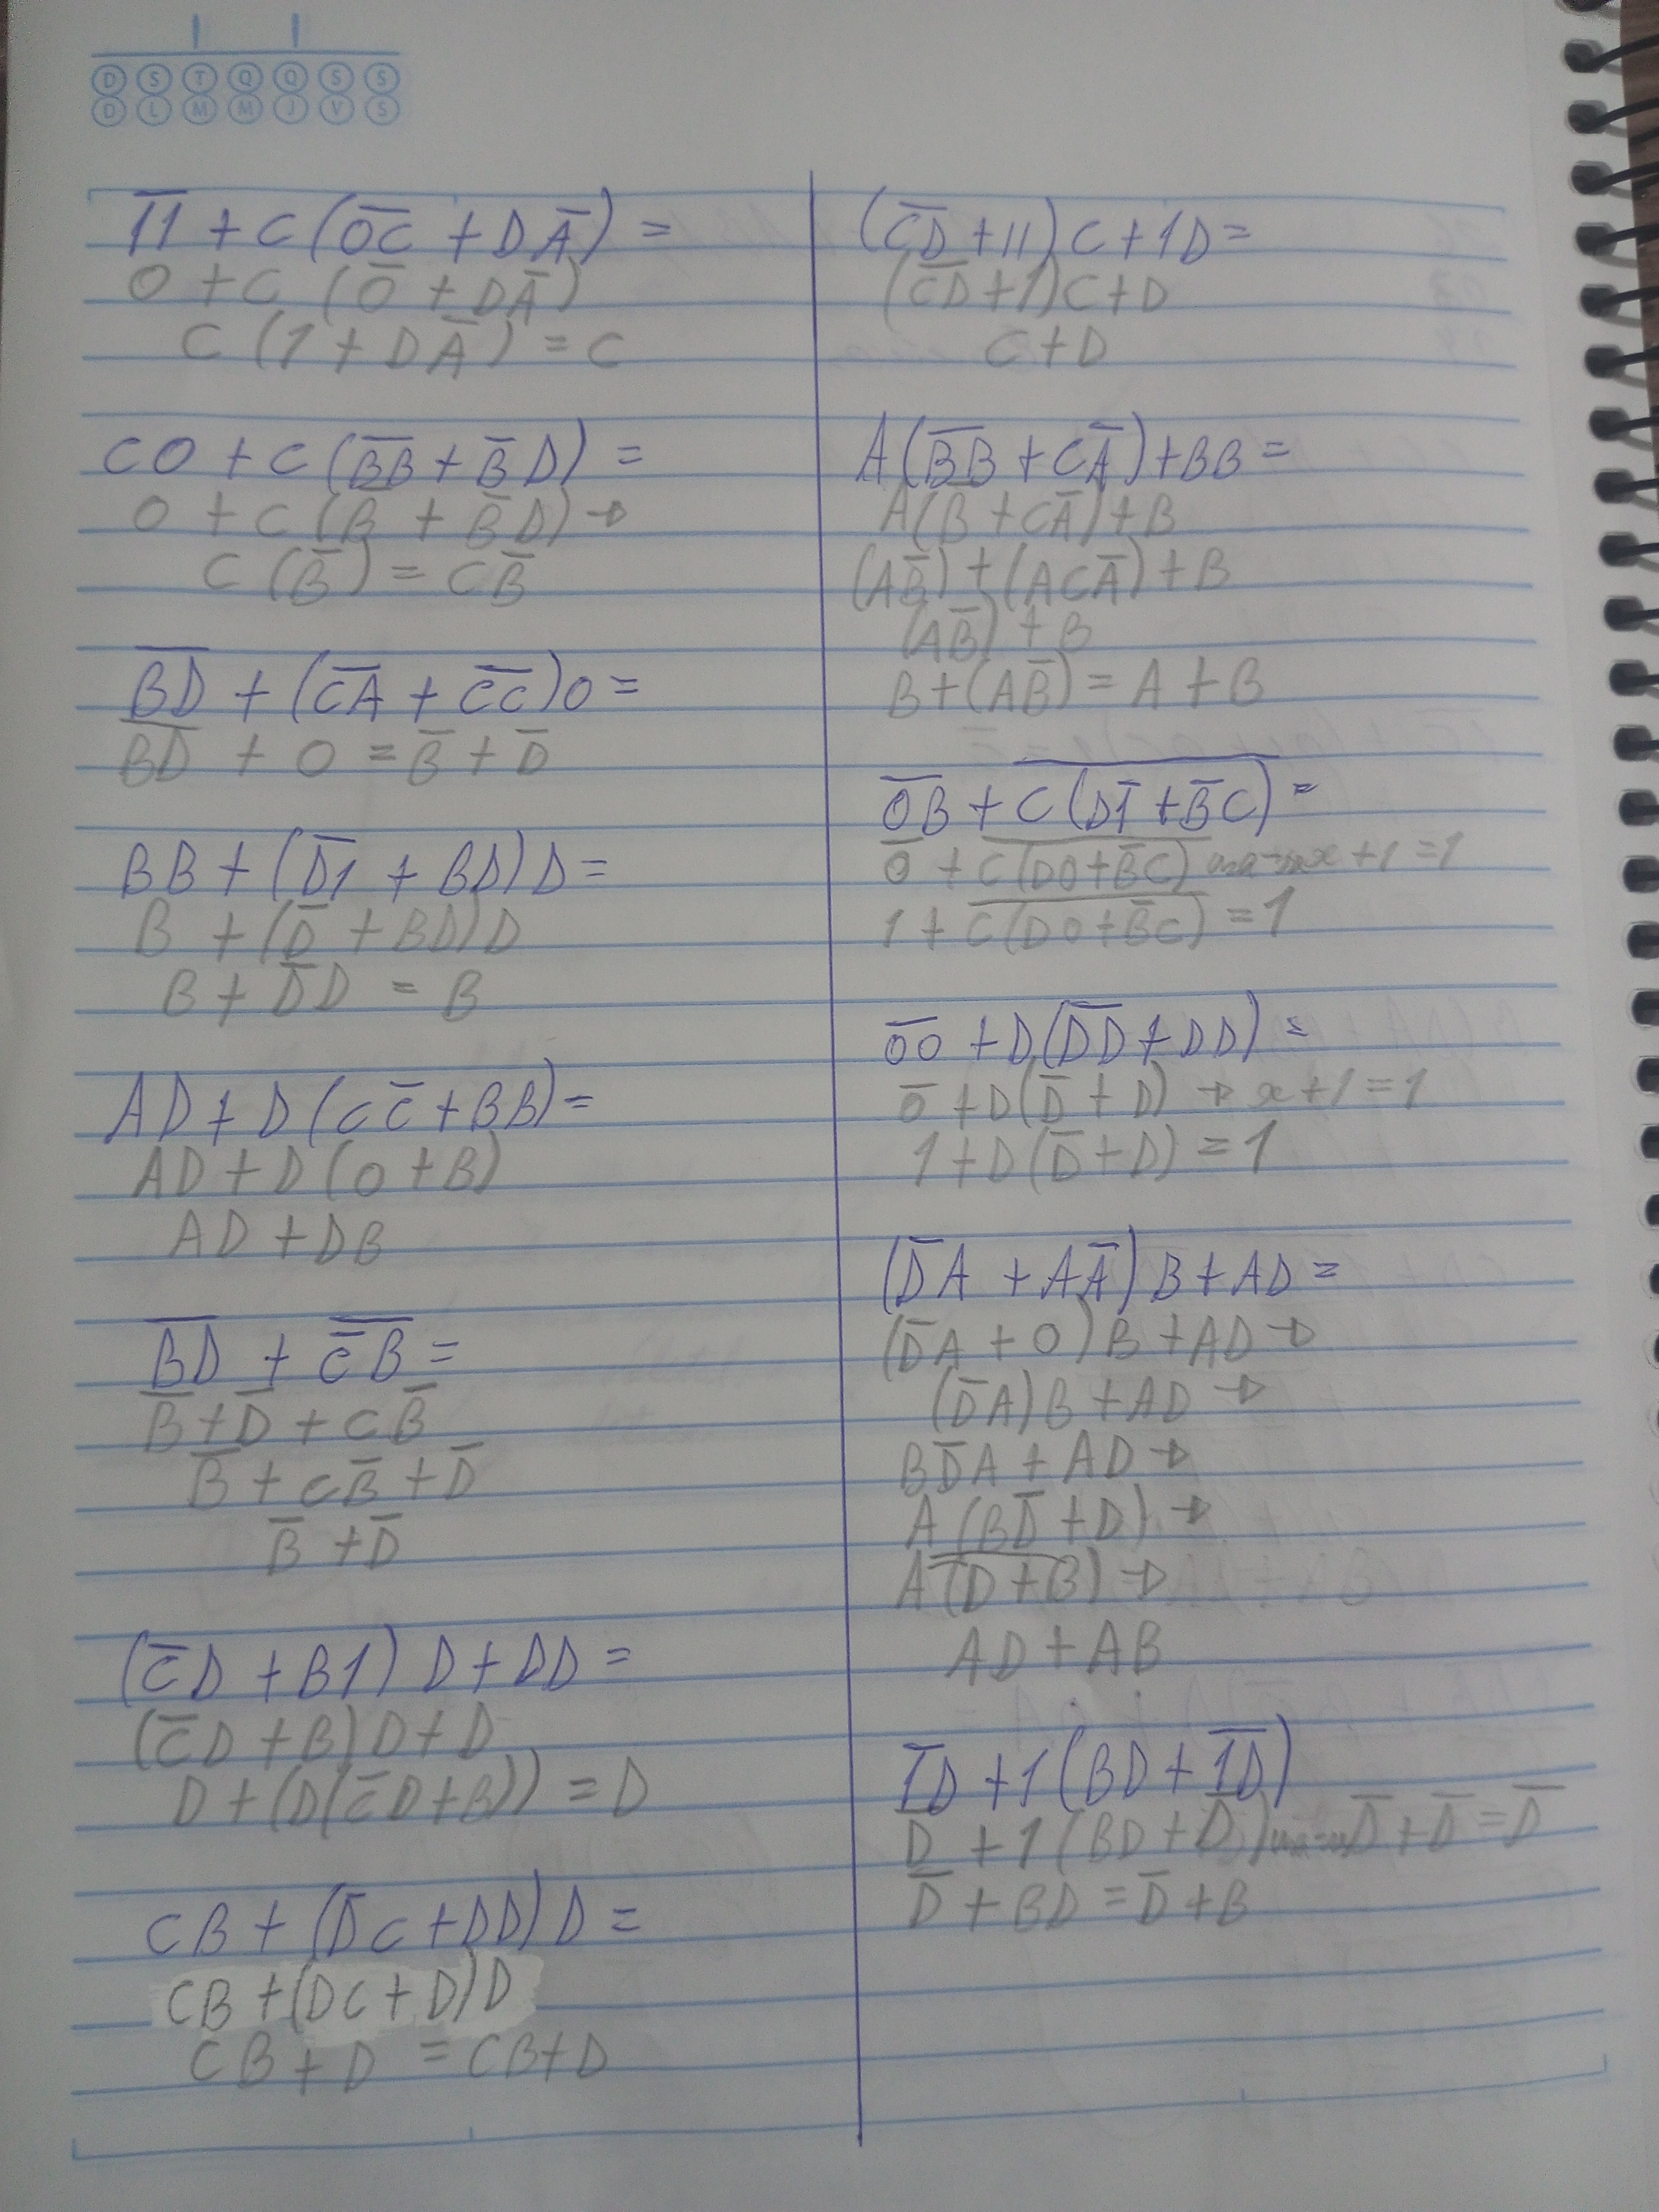 D S T Q Q S S
D L M M J V S
1̅1̅ + C (0̅C̅ + DA̅) =
0 + C (0̅ + DA̅)
C (1 + DA̅) = C
C0 + C (B̅B̅ + B̅D) =
0 + C (B̅ + B̅D) →
C (B̅) = CB̅
B̅D̅ + (C̅A̅ + C̅C̅)0 =
B̅D̅ + 0 = B̅ + D̅
BB + (D̅1 + BD)D =
B + (D̅ + BD)D
B + D̅D = B
AD + D (CC̅ + BB) =
AD + D (0 + B)
AD + DB
B̅D̅ + \overline{C̅B} =
B̅ + D̅ + CB̅
B̅ + CB̅ + D̅
B̅ + D̅
(C̅D + B1) D + DD =
(C̅D + B)D + D
D + (D(C̅D + B)) = D
CB + (D̅C + DD)D =
CB + (DC + D)D
CB + D = CB + D
(C̅D̅ + 11)C + 1D =
(C̅D̅ + 1)C + D
C + D
A(B̅B̅ + CA̅) + BB =
A(B̅ + CA̅) + B
(AB̅) + (ACA̅) + B
(AB̅) + B
B + (AB̅) = A + B
0̅B̅ + \overline{C(D1̅ + B̅C)} =
0̅ + \overline{C(D0 + B̅C)} x + 1 = 1
1 + \overline{C(D0 + B̅C)} = 1
0̅0̅ + D(D̅D̅ + DD) =
0̅ + D(D̅ + D) → x + 1 = 1
1 + D(D̅ + D) = 1
(D̅A + AA̅) B + AD =
(D̅A + 0) B + AD →
(D̅A)B + AD →
BD̅A + AD →
A (BD̅ + D) →
A (D + B) →
AD + AB
1̅D̅ + 1 (BD + 1̅D̅)
D̅ + 1 (BD + D̅) D̅ + D̅ = D̅
D̅ + BD = D̅ + B